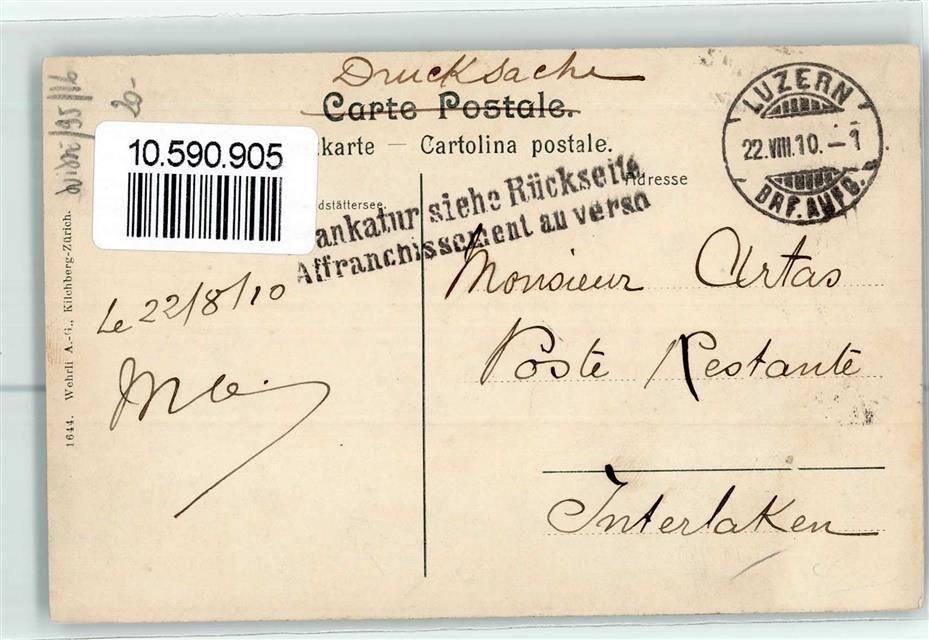 Drucksache
Carte Postale.
tkarte — Cartolina postale.
LUZERN
22.VIII.10.–1
BRF.AUFG.
10.590.905
20-
dstättersee.
Adresse
ankatur siehe Rückseite
Affranchissement au verso
1644. Wehrli A.-G., Kilchberg-Zürich.
Le 22/8/10
Monsieur Artas
Poste Restante
Interlaken